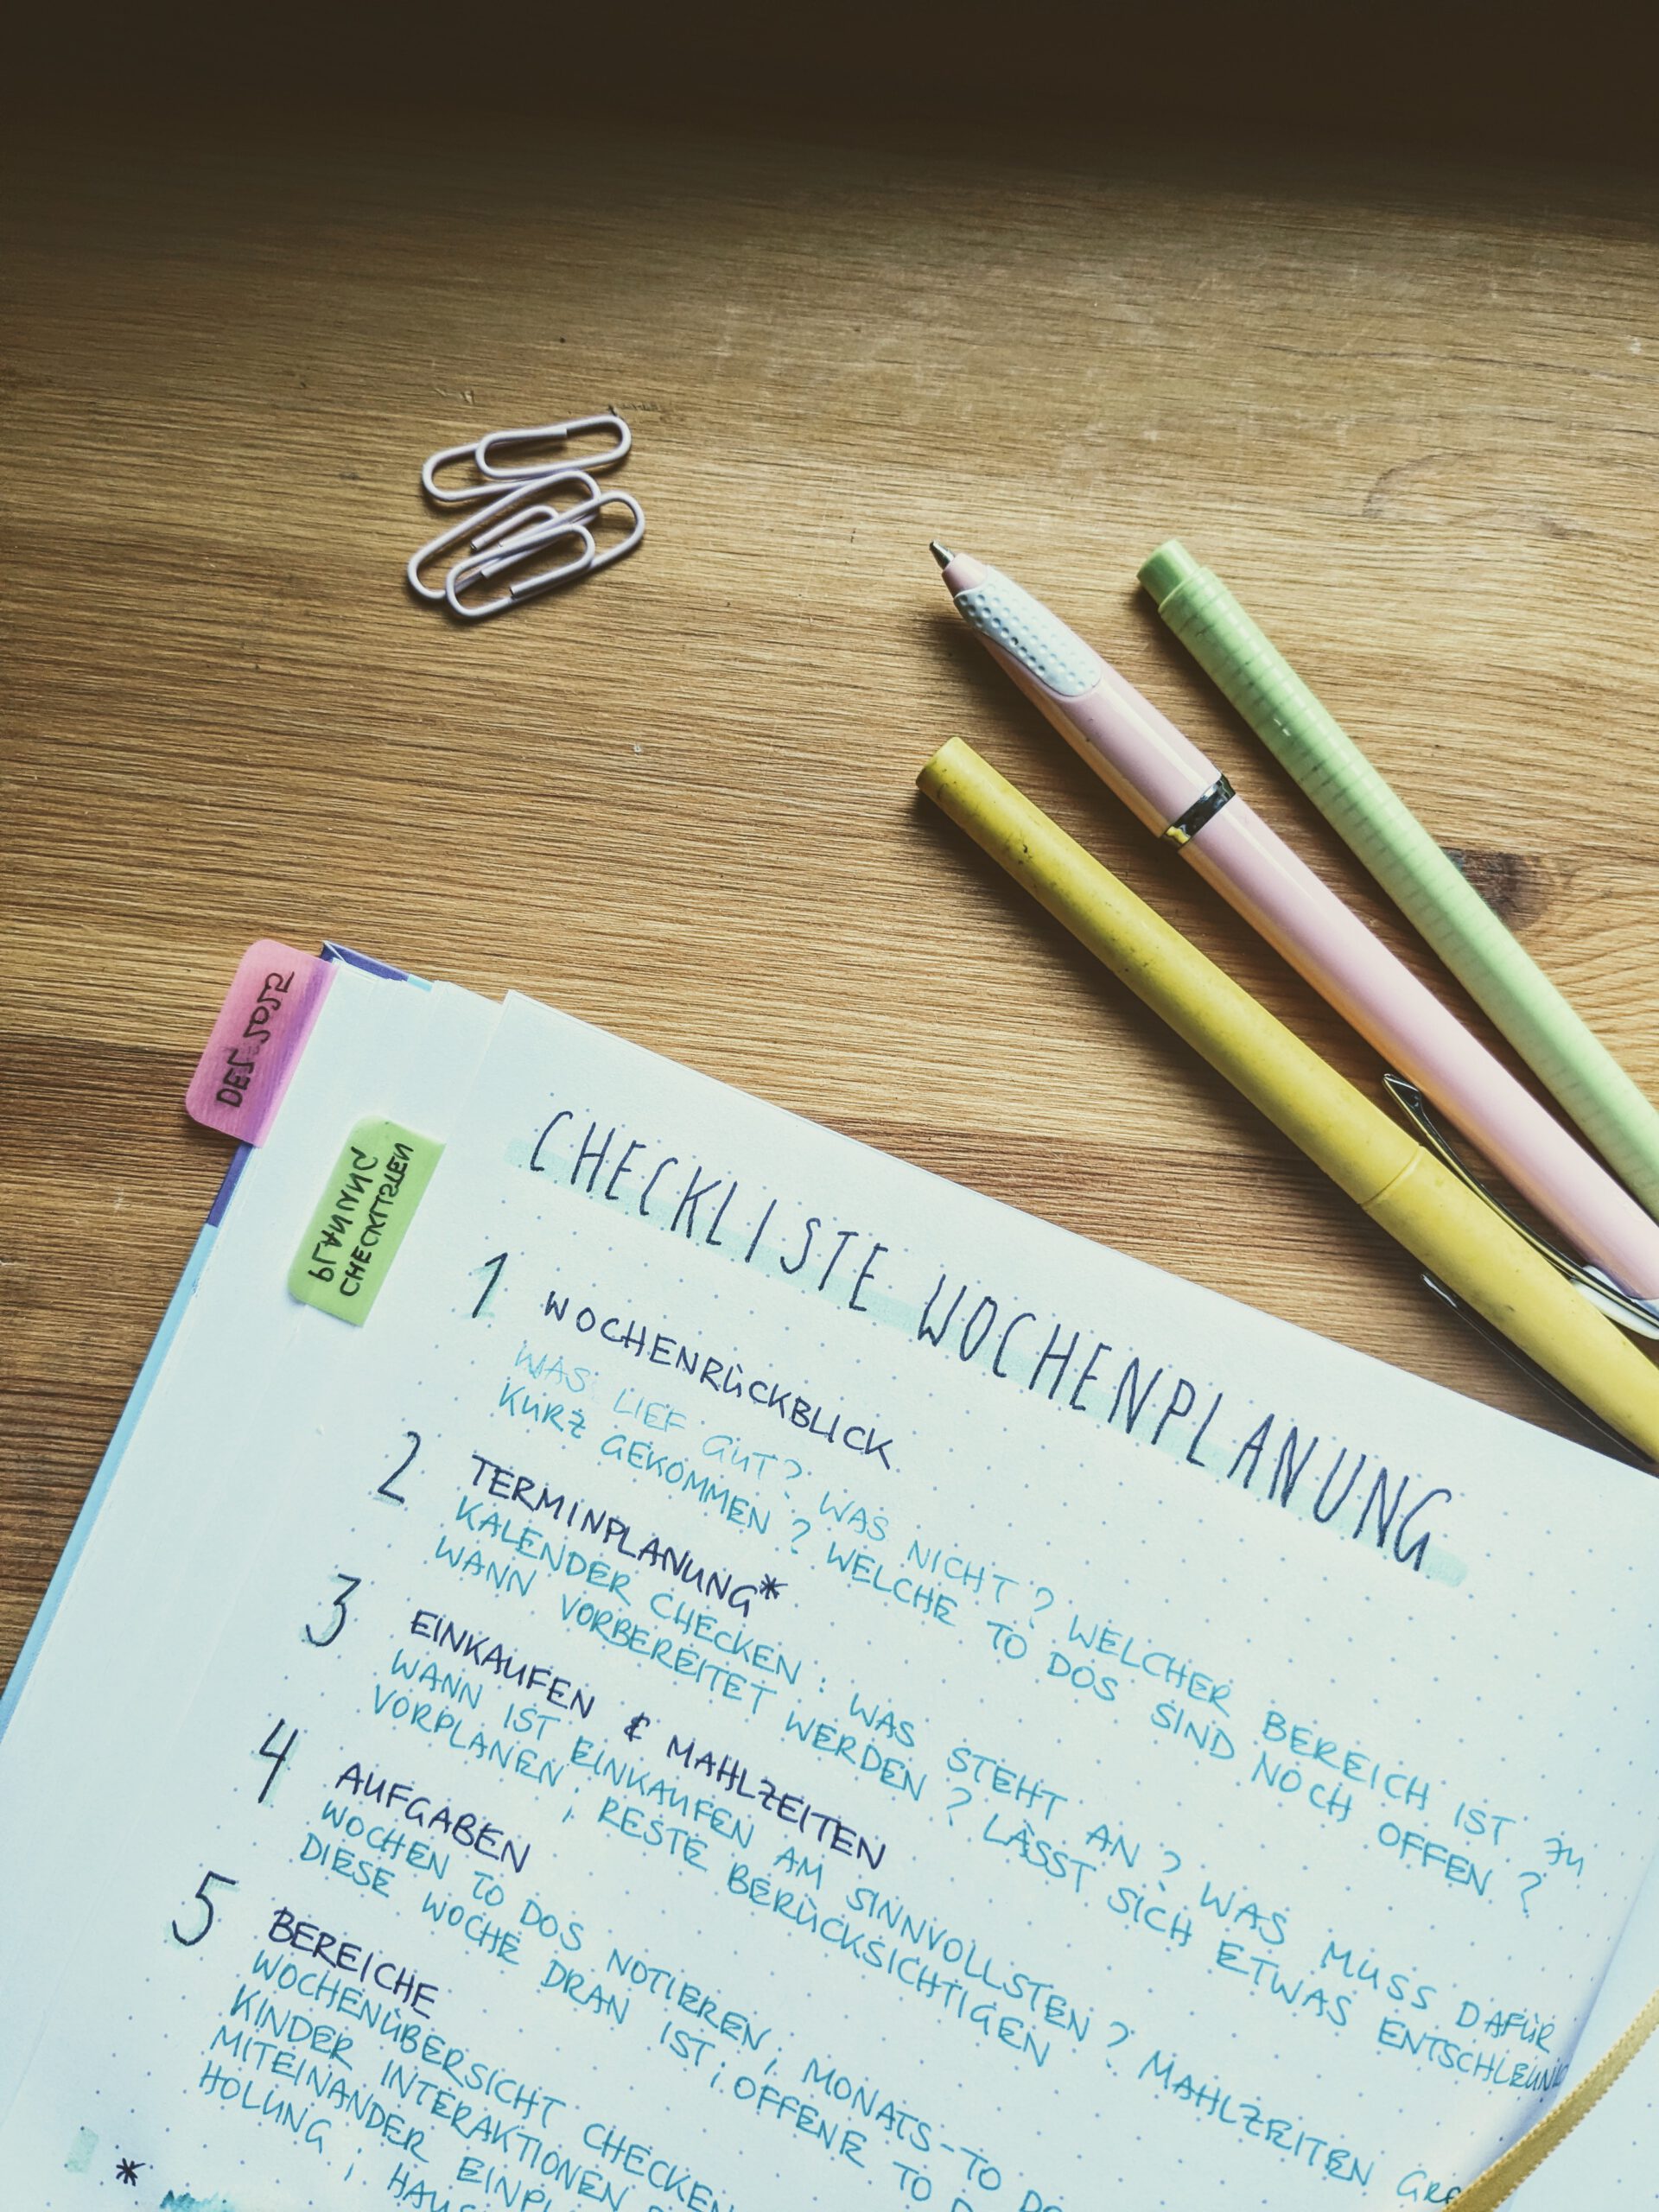 PLANNING
CHECKLISTEN
CHECKLISTE WOCHENPLANUNG
1 WOCHENRÜCKBLICK
WAS LIEF GUT? WAS NICHT? WELCHER BEREICH IST ZU
KURZ GEKOMMEN? WELCHE TO DOS SIND NOCH OFFEN?
2 TERMINPLANUNG*
KALENDER CHECKEN: WAS STEHT AN? WAS MUSS DAFÜR
WANN VORBEREITET WERDEN? LÄSST SICH ETWAS
3 EINKAUFEN & MAHLZEITEN
WANN IST EINKAUFEN AM SINNVOLLSTEN? MAHLZEITEN
VORPLANEN; RESTE BERÜCKSICHTIGEN
4 AUFGABEN
WOCHEN TO DOS NOTIEREN; MONATS-TO
DIESE WOCHE DRAN IST; OFFENE TO
5 BEREICHE
WOCHENÜBERSICHT CHECKEN
KINDER INTERAKTIONEN
MITEINANDER
HOLUNG;
*